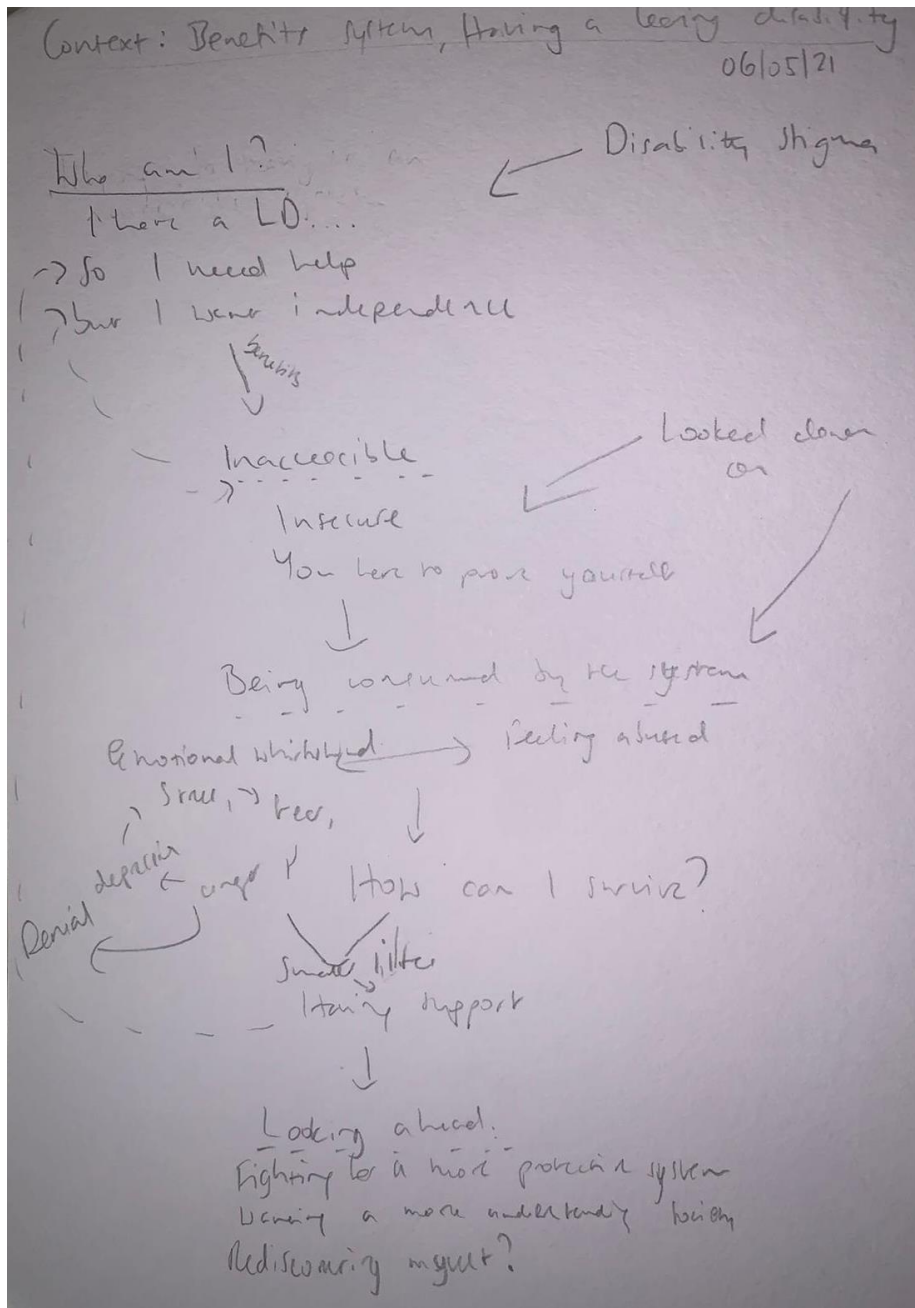 Context: Benefits system, Having a learing disability
06/05/21
Disability stigma
Who am I?
I have a LD....
-> So I need help
-> but I want independence
benefits
Inaccecible
Looked down
on
Insecure
You have to prove yourself
Being consumed by the system
Emotional whirlwind
Feeling abused
Stress, -> fear,
depression
anger
How can I survive?
Denial
filter
Having support
Looking ahead.
Fighting for a more protective system
Wanting a more understanding society
Rediscovering myself?